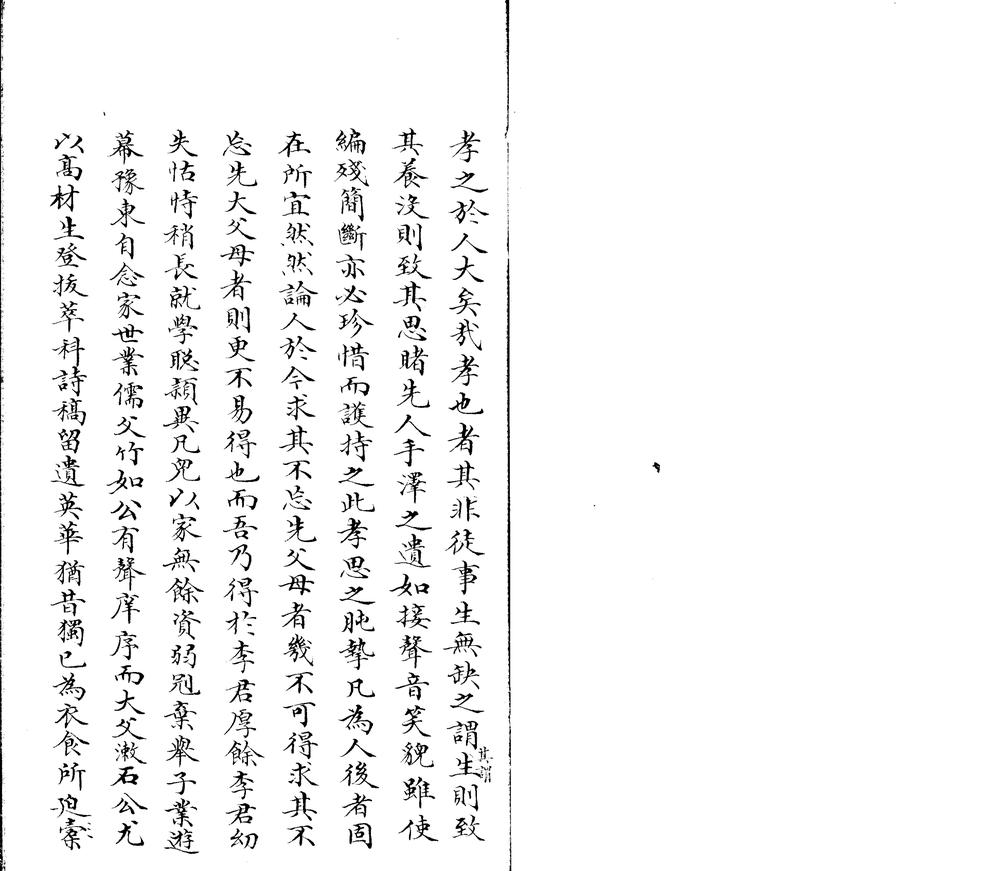 孝之於人大矣哉孝也者其非徒事生無缺之謂其謂生則致
其養沒則致其思睹先人手澤之遺如接聲音笑貌雖使
編殘簡斷亦必珍惜而護持之此孝思之肫摯凡為人後者固
在所宜然然論人於今求其不忘先父母者幾不可得求其不
忘先大父母者則更不易得也而吾乃得於李君厚餘李君幼
失怙恃稍長就學聰穎異凡兒以家無餘資弱冠棄舉子業遊
幕豫東自念家世業儒父竹如公有聲庠序而大父漱石公尤
以高材生登拔萃科詩稿留遺英華猶昔獨已為衣食所迫橐